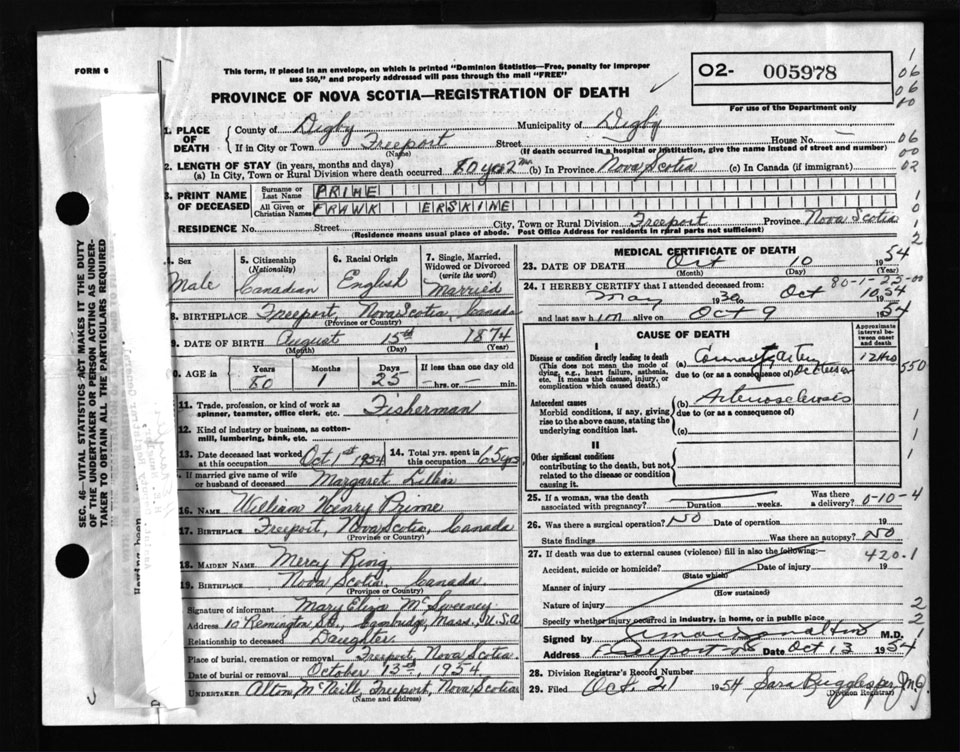 FORM 6
This form, if placed in an envelope, on which is printed "Dominion Statistics—Free, penalty for improper
use $50," and properly addressed will pass through the mail "FREE"
O2- 005978
For use of the Department only
PROVINCE OF NOVA SCOTIA—REGISTRATION OF DEATH
1
06
06
00
1. PLACE OF DEATH
County of Digby Municipality of Digby
If in City or Town Freeport Street House No.
(Name) (If death occurred in a hospital or institution, give the name instead of street and number)
06
00
02
2. LENGTH OF STAY (in years, months and days)
(a) In City, Town or Rural Division where death occurred 80 yrs 2 mo (b) In Province Nova Scotia (c) In Canada (if immigrant)
3. PRINT NAME OF DECEASED
Surname or Last Name PRIME
All Given or Christian Names FRANK ERSKINE
RESIDENCE No. Street City, Town or Rural Division Freeport Province Nova Scotia
(Residence means usual place of abode. Post Office Address for residents in rural parts not sufficient)
4. Sex Male
5. Citizenship (Nationality) Canadian
6. Racial Origin English
7. Single, Married, Widowed or Divorced (write the word) Married
8. BIRTHPLACE Freeport, Nova Scotia, Canada
(Province or Country)
9. DATE OF BIRTH August 15th 1874
(Month) (Day) (Year)
10. AGE in Years 80 Months 1 Days 25 If less than one day old
hrs. or min.
11. Trade, profession, or kind of work as
spinner, teamster, office clerk, etc. Fisherman
12. Kind of industry or business, as cotton-
mill, lumbering, bank, etc.
13. Date deceased last worked at this occupation Oct 1st 1954
14. Total yrs. spent in this occupation 65 yrs
If married give name of wife
or husband of deceased Margaret
16. NAME William Henry Prime
17. BIRTHPLACE Freeport, Nova Scotia, Canada
(Province or Country)
18. MAIDEN NAME Mercy Ring
19. BIRTHPLACE Nova Scotia, Canada
(Province or Country)
Signature of informant Mary Eliza McSweeney
Address 10 Remington St., Cambridge, Mass, U.S.A
Relationship to deceased Daughter
Place of burial, cremation or removal Freeport, Nova Scotia
Date of burial or removal October 13th, 1954
UNDERTAKER Alton McNeill, Freeport, Nova Scotia
(Name and address)
MEDICAL CERTIFICATE OF DEATH
23. DATE OF DEATH Oct 10 1954
(Month) (Day) (Year)
80-1-25-00
24. I HEREBY CERTIFY that I attended deceased from:
May 1930 Oct 10 54 19
and last saw him alive on Oct 9 1954
CAUSE OF DEATH
Approximate interval between onset and death
I
Disease or condition directly leading to death
(This does not mean the mode of
dying, e.g., heart failure, asthenia,
etc. It means the disease, injury, or
complication which caused death.)
(a) Coronary artery 12 Hrs
due to (or as a consequence of)
550
Antecedent causes
Morbid conditions, if any, giving
rise to the above cause, stating the
underlying condition last.
(b) Arteriosclerosis
due to (or as a consequence of)
(c)
II
Other significant conditions
contributing to the death, but not
related to the disease or condition
causing it.
25. If a woman, was the death associated with pregnancy? Duration weeks. Was there a delivery?
0-10-4
26. Was there a surgical operation? NO Date of operation 19
State findings Was there an autopsy? NO
27. If death was due to external causes (violence) fill in also the following:— 420.1
Accident, suicide or homicide? Date of injury 19
(State which)
Manner of injury
(How sustained)
Nature of injury
Specify whether injury occurred in industry, in home, or in public place
Signed by M.D.
Address Freeport NS Date Oct 13 1954
28. Division Registrar's Record Number
29. Filed Oct. 21 1954 Sara
(Division Registrar)
SEC. 46—VITAL STATISTICS ACT MAKES IT THE DUTY
OF THE UNDERTAKER OR PERSON ACTING AS UNDER-
TAKER TO OBTAIN ALL THE PARTICULARS REQUIRED